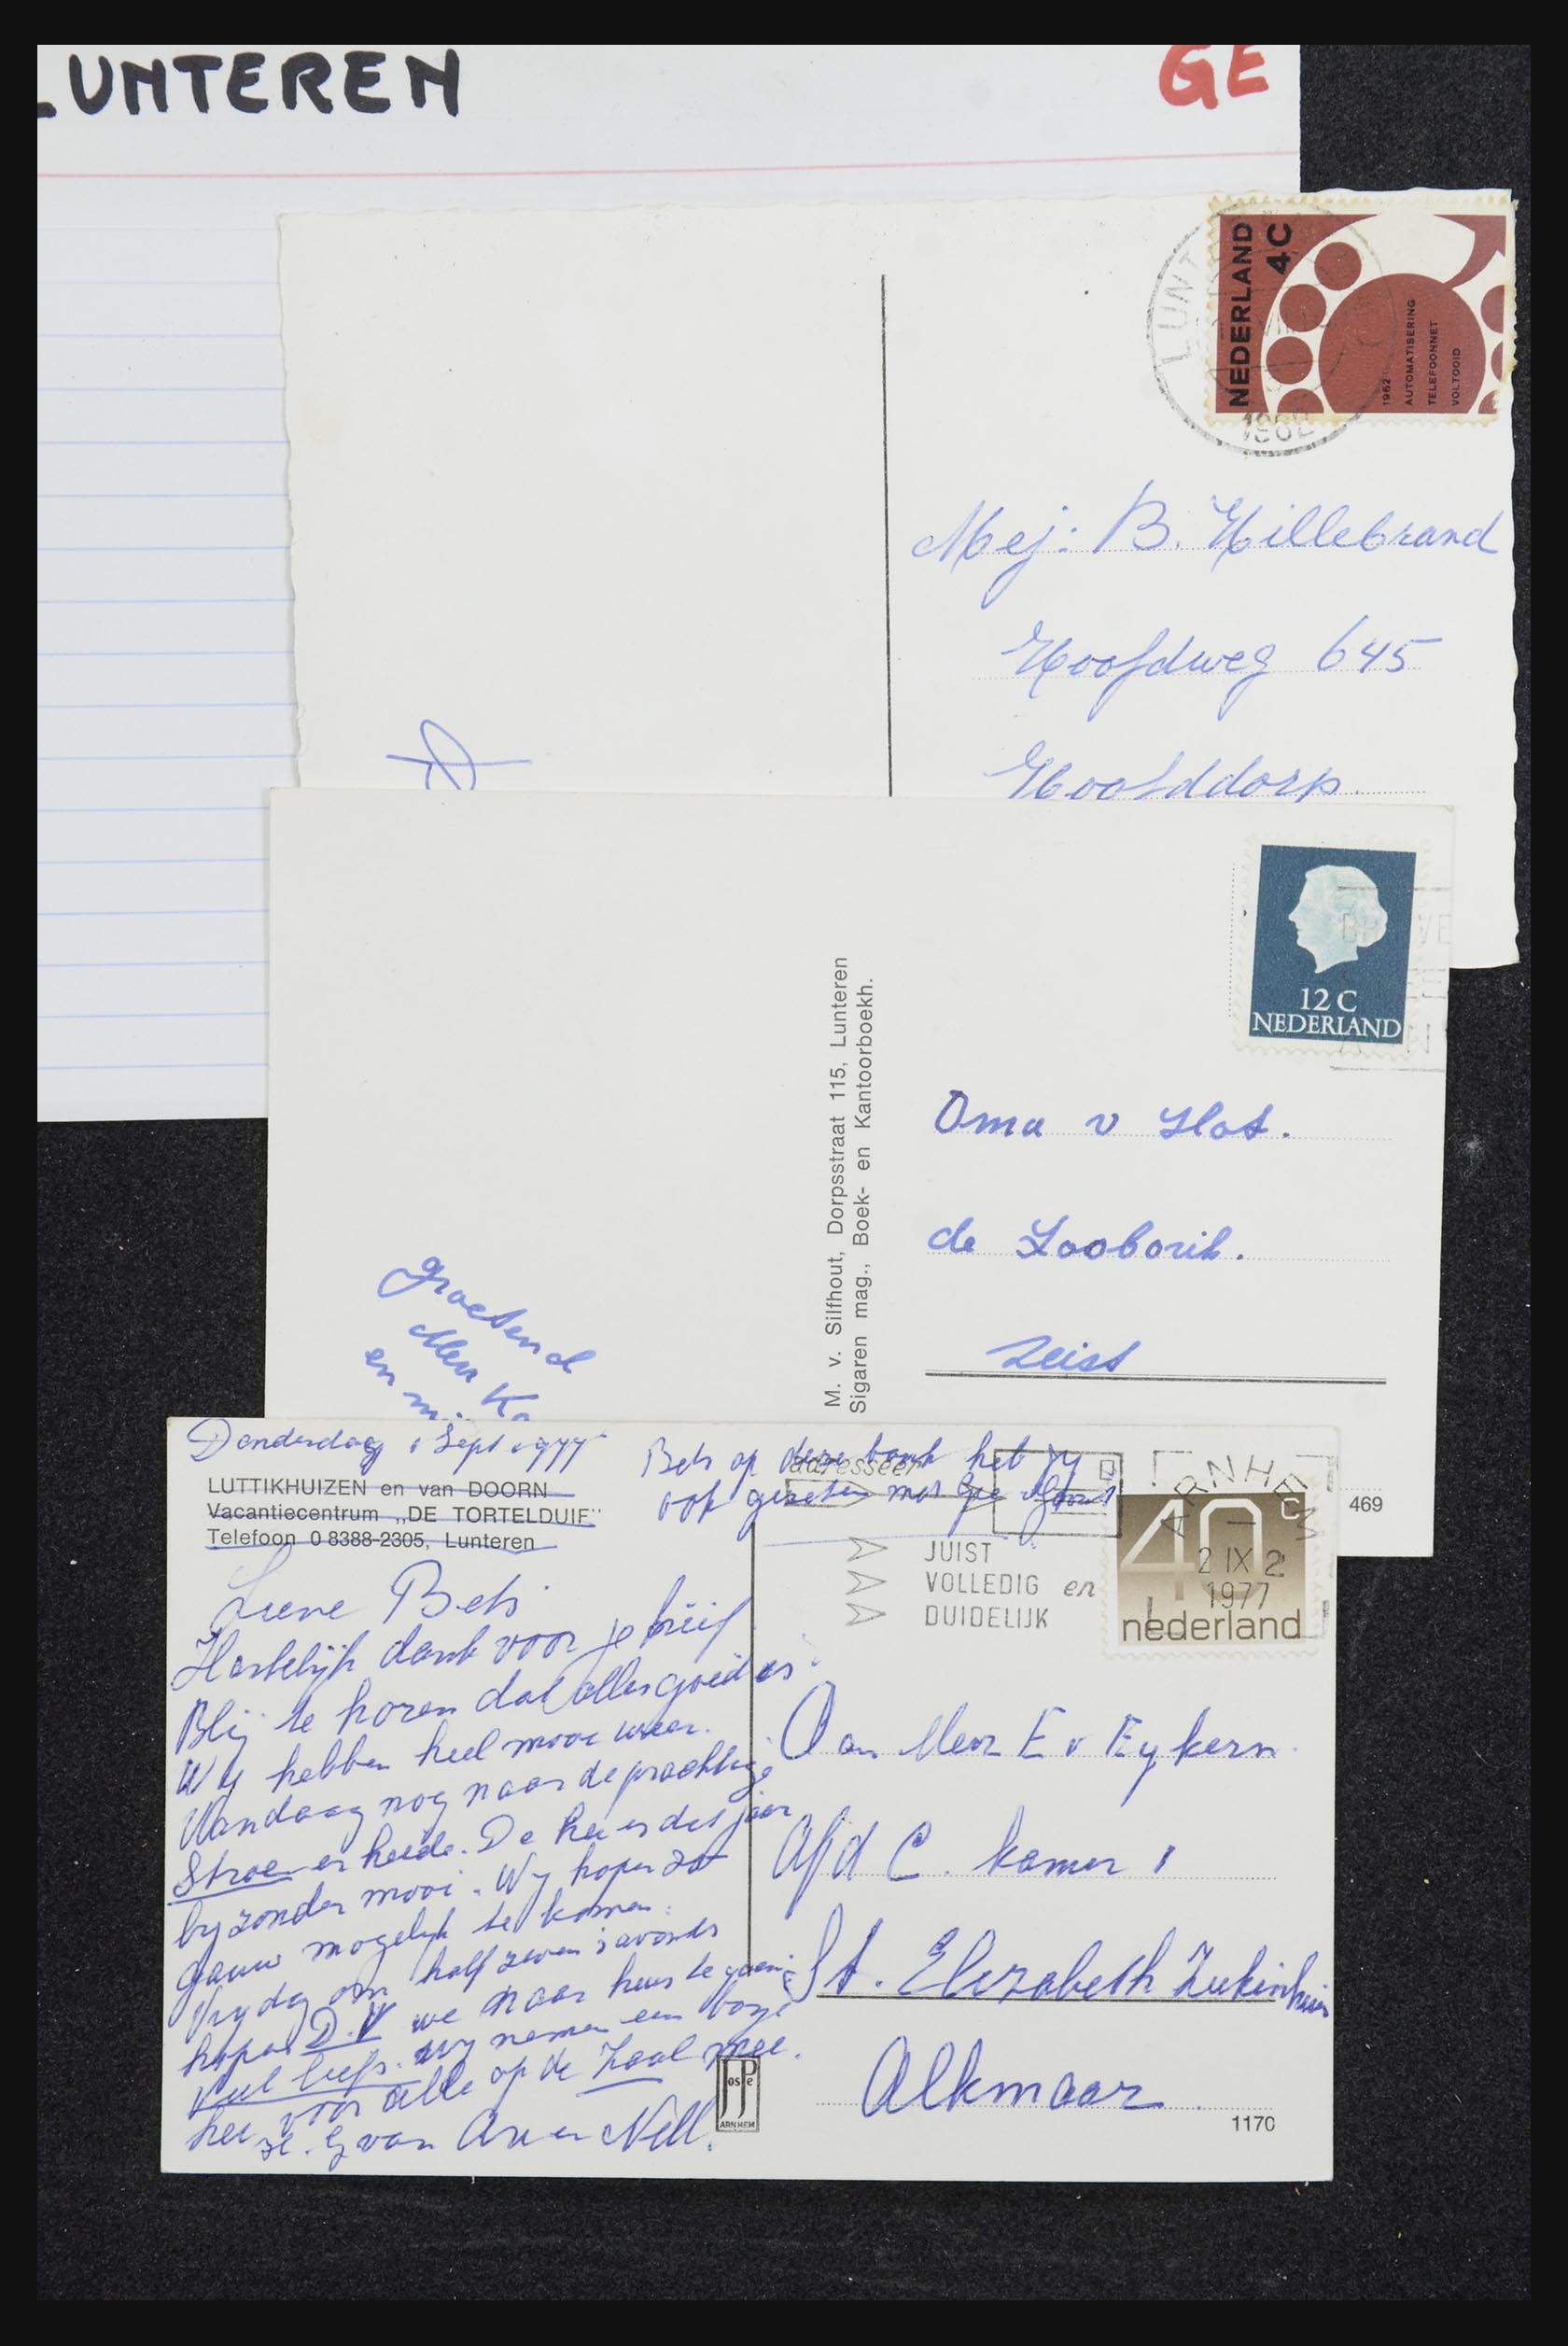 LUNTEREN
GE
LUNT
1962
NEDERLAND
4C
1962
AUTOMATISERING
TELEFOONNET
VOLTOOID
Mej: B. Hillebrand
Hoofdweg 645
Hoofddorp.
12 C
NEDERLAND
M. v. Silfhout, Dorpsstraat 115, Lunteren
Sigaren mag., Boek- en Kantoorboekh.
Oma v Slot.
de Looborik.
Zeist
groetend
en
469
Donderdag 1 Sept 1977
Bets op deze bank heb jy
ook gezeten met
LUTTIKHUIZEN en van DOORN
Vacantiecentrum „DE TORTELDUIF"
Telefoon 0 8388-2305, Lunteren
adresseer
JUIST
VOLLEDIG en
DUIDELIJK
ARNHEM
2 IX 2
1977
40 c
nederland
Lieve Bets
Hartelijk dank voor je brief
Blij te horen dat alles goed is
Wy hebben heel mooi weer.
Vandaag nog naar de prachtige
Stroese heide. De hei is dit jaar
byzonder mooi. Wy hopen zo
gauw mogelyk te komen.
Vrydag om half zeven 's avonds
hopen D.V we naar huis te gaan.
Veel liefs. Wy nemen een bosje
hei voor alle op de zaal mee.
van en Nell.
Aan Mevr E v Eykern
Afd C. kamer 1
St. Elizabeth Ziekenhuis
Alkmaar
JosPe
ARNHEM
1170